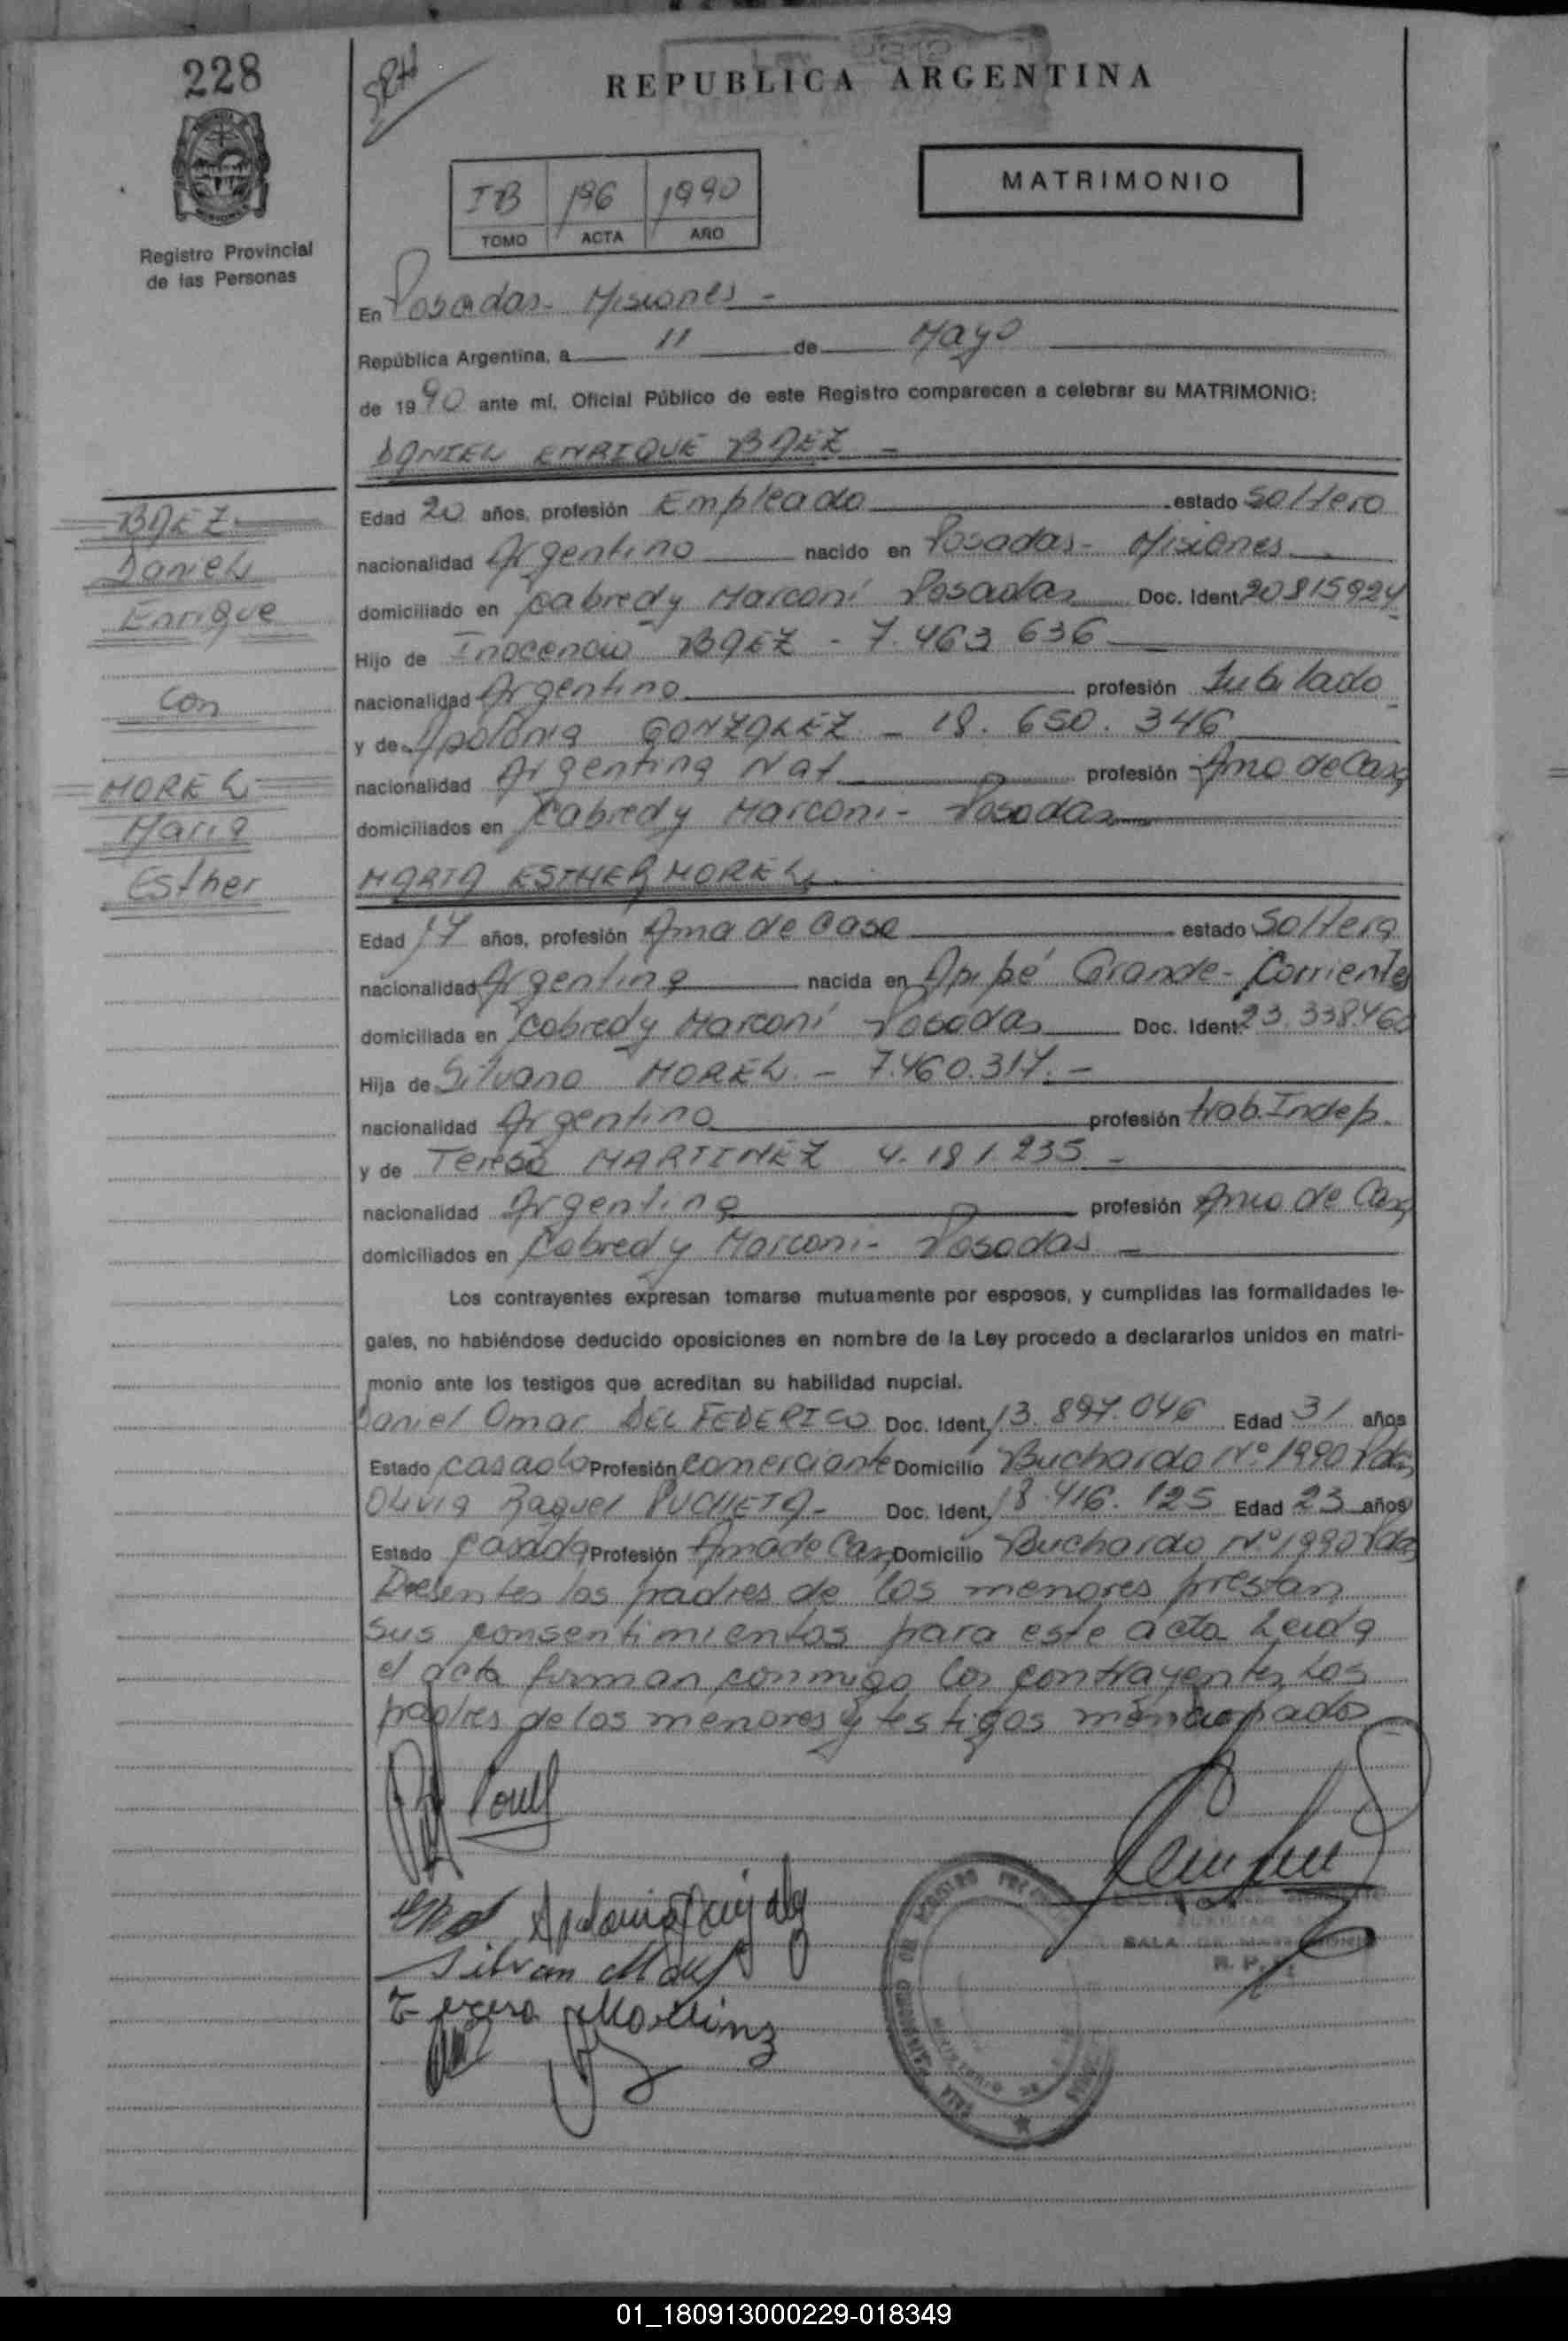 228
REPUBLICA ARGENTINA
MATRIMONIO
IB 196 1990
TOMO ACTA AÑO
Registro Provincial
de las Personas
En Posadas - Misiones -
República Argentina, a 11 de Mayo
de 1990 ante mí, Oficial Público de este Registro comparecen a celebrar su MATRIMONIO:
DANIEL ENRIQUE BAEZ -
BAEZ
Daniel
Enrique
con
MOREL
Maria
Esther
Edad 20 años, profesión Empleado estado Soltero
nacionalidad Argentino nacido en Posadas - Misiones
domiciliado en Cabred y Marconi Posadas Doc. Ident. 20815924
Hijo de Inocencio BAEZ - 7.463 636
nacionalidad Argentino profesión Jubilado
y de Apolonia GONZALEZ - 18. 650. 346
nacionalidad Argentina Nat profesión Ama de Casa
domiciliados en Cabred y Marconi - Posadas
MARIA ESTHER MOREL
Edad 17 años, profesión Ama de Casa estado Soltera
nacionalidad Argentina nacida en Apipé Grande - Corrientes
domiciliada en Cabred y Marconi Posadas Doc. Ident. 23.338.460
Hija de Silvano MOREL - 7.460.317. -
nacionalidad Argentino profesión trab. Indep.
y de Teresa MARTINEZ 4. 181.235 -
nacionalidad Argentina profesión Ama de Casa
domiciliados en Cabred y Marconi - Posadas -
Los contrayentes expresan tomarse mutuamente por esposos, y cumplidas las formalidades le-
gales, no habiéndose deducido oposiciones en nombre de la Ley procedo a declararlos unidos en matri-
monio ante los testigos que acreditan su habilidad nupcial.
Daniel Omar DEL FEDERICO Doc. Ident. 13. 897. 046 Edad 31 años
Estado casado Profesión comerciante Domicilio Buchardo Nº 1990 Pdas
Olivia Raquel PUCHETA - Doc. Ident. 18.416. 125 Edad 23 años
Estado casada Profesión Ama de Casa Domicilio Buchardo Nº 1990 Pdas
Presentes los padres de los menores prestan
sus consentimientos para este acto Leida
el acta firman conmigo los contrayentes los
padres de los menores y testigos mencionados
Silvan
Teresa
SALA DE MATRIMONIOS
01_180913000229-018349